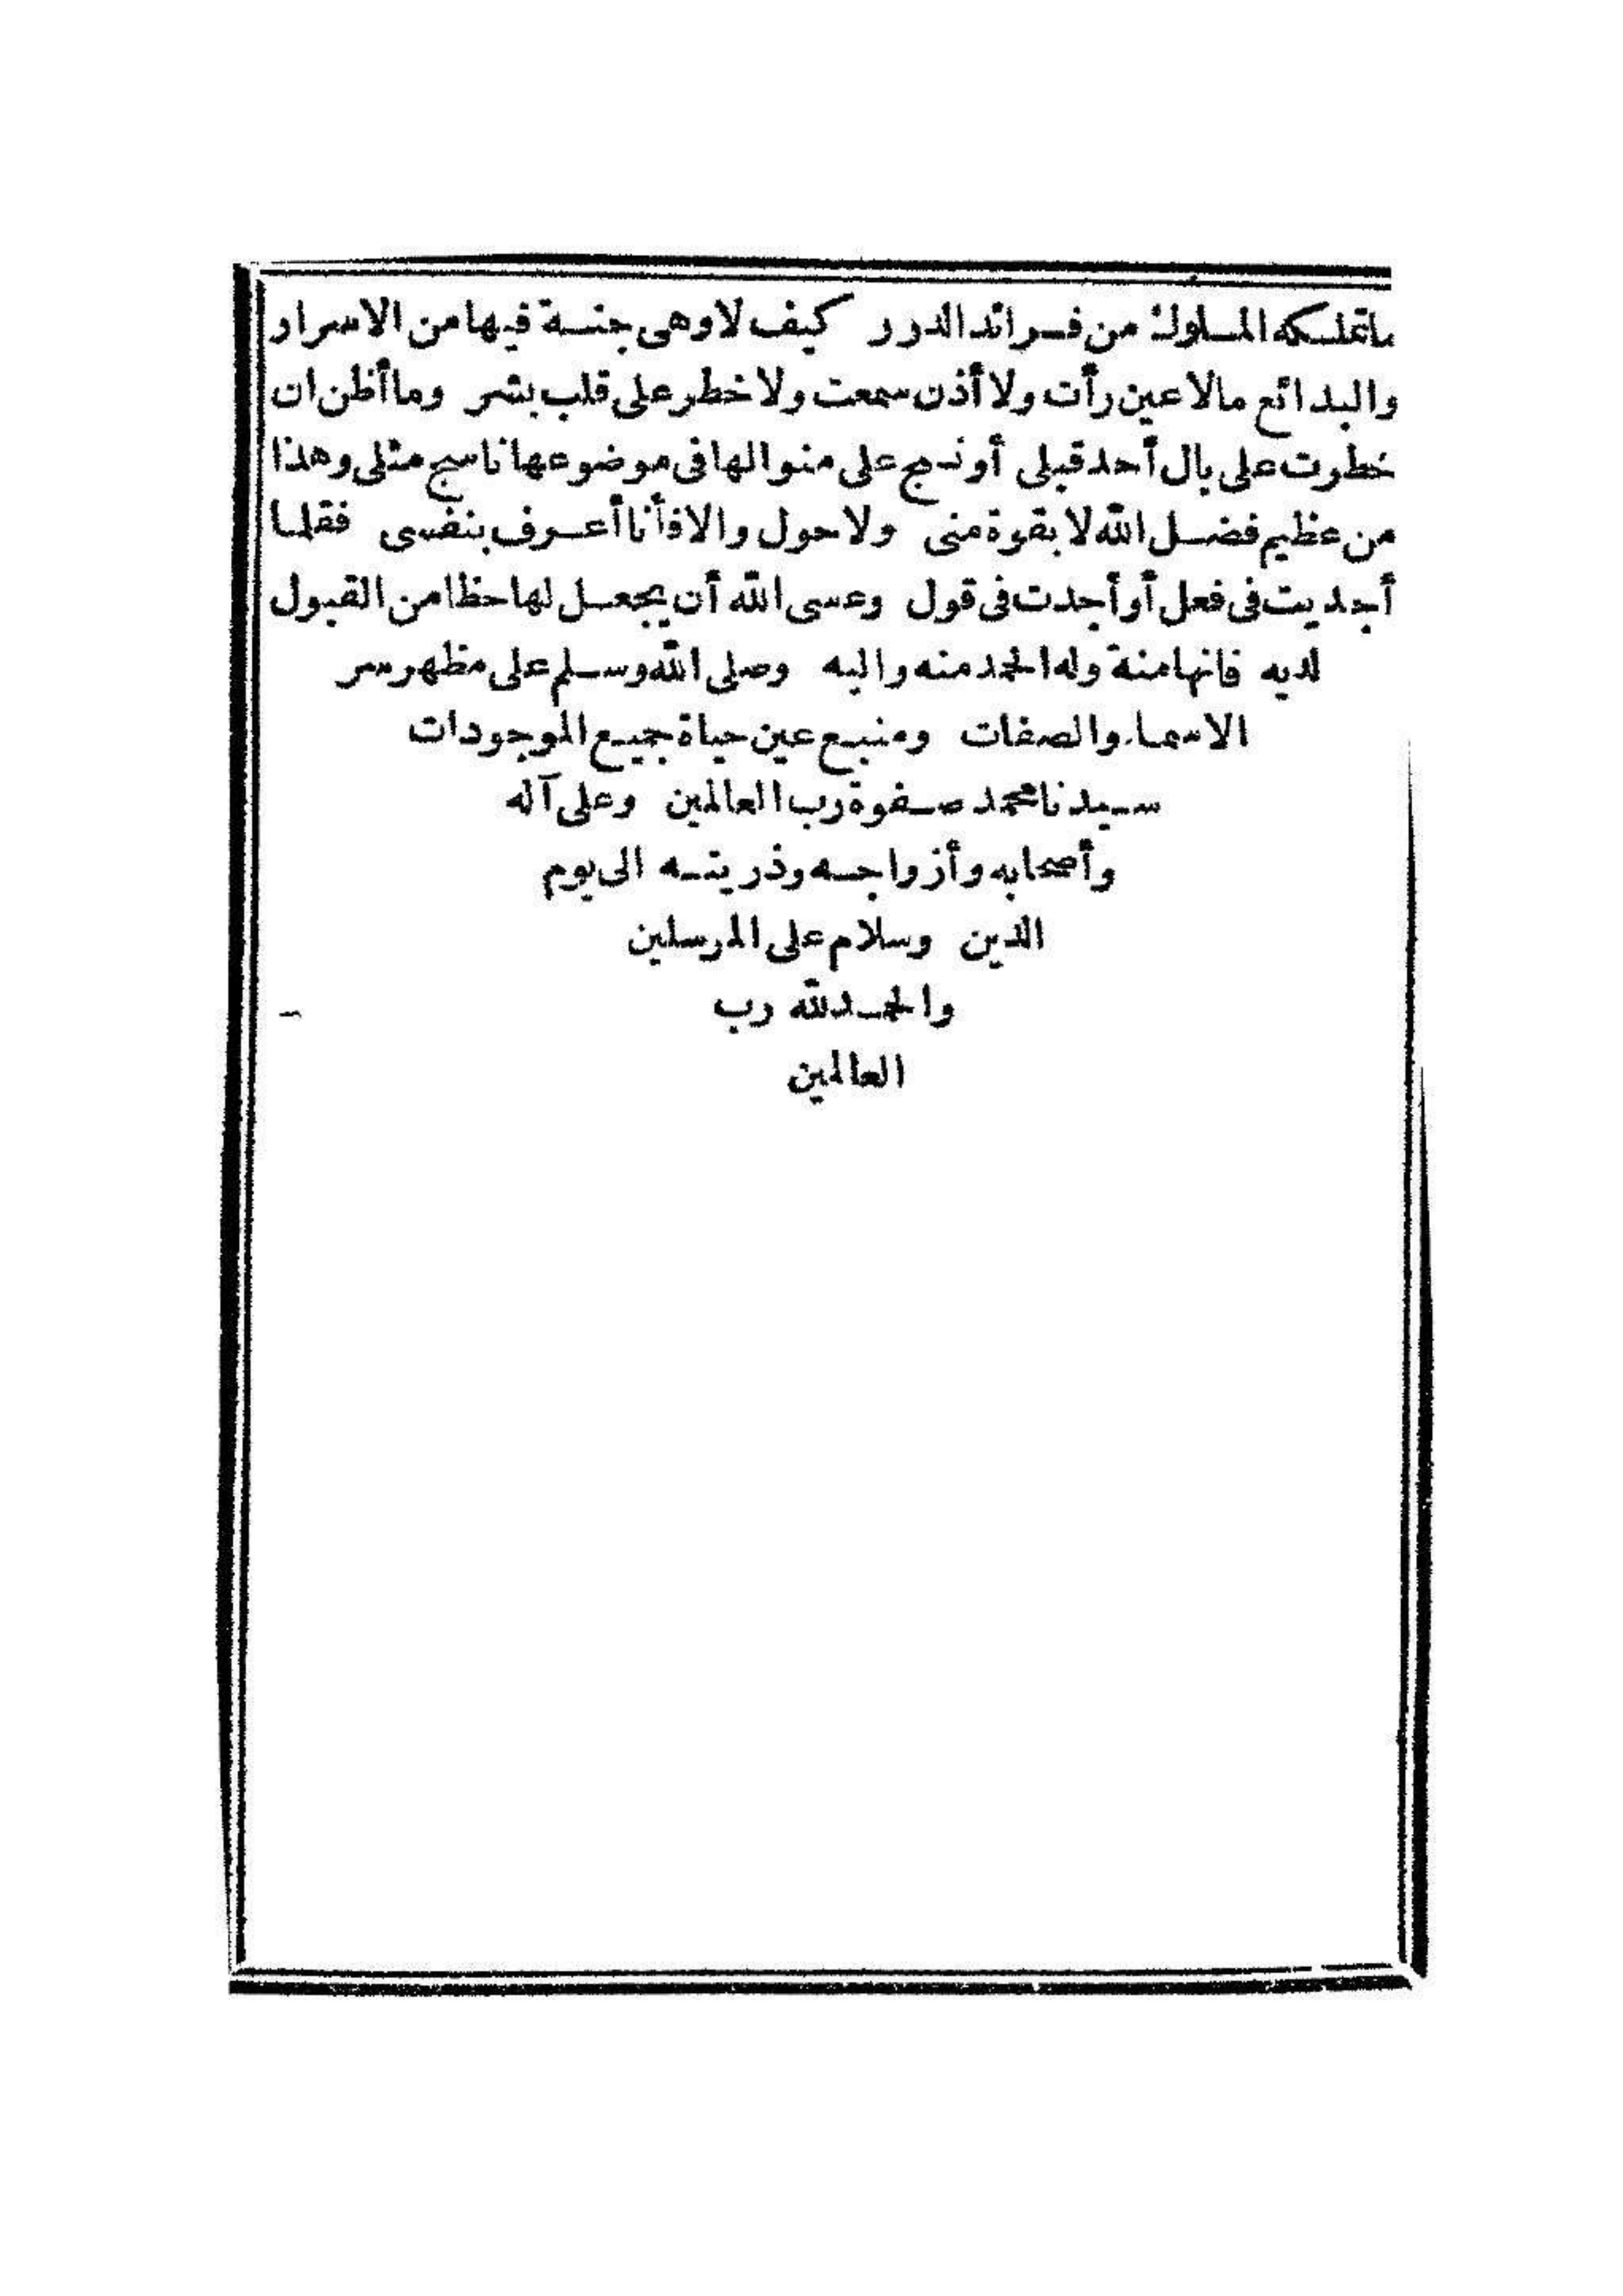 ماتملكه الملوك من فرائد الدرر كيف لا وهى جنة فيها من الاسرار
والبدائع مالا عين رأت ولا أذن سمعت ولا خطر على قلب بشر وما أظن ان
خطرت على بال أحد قبلى أو نسج على منوالها فى موضوعها ناسج مثلى وهذا
من عظيم فضل الله لا بقوة منى ولا حول والا فأنا أعرف بنفسى فقلما
أجديت فى فعل أو أجدت فى قول وعسى الله أن يجعل لها حظا من القبول
لديه فانها منة وله الحمد منه واليه وصلى الله وسلم على مظهر سر
الاسماء والصفات ومنبع عين حياة جميع الموجودات
سيدنا محمد صفوة رب العالمين وعلى آله
وأصحابه وأزواجه وذريته الى يوم
الدين وسلام على المرسلين
والحمد لله رب
العالمين